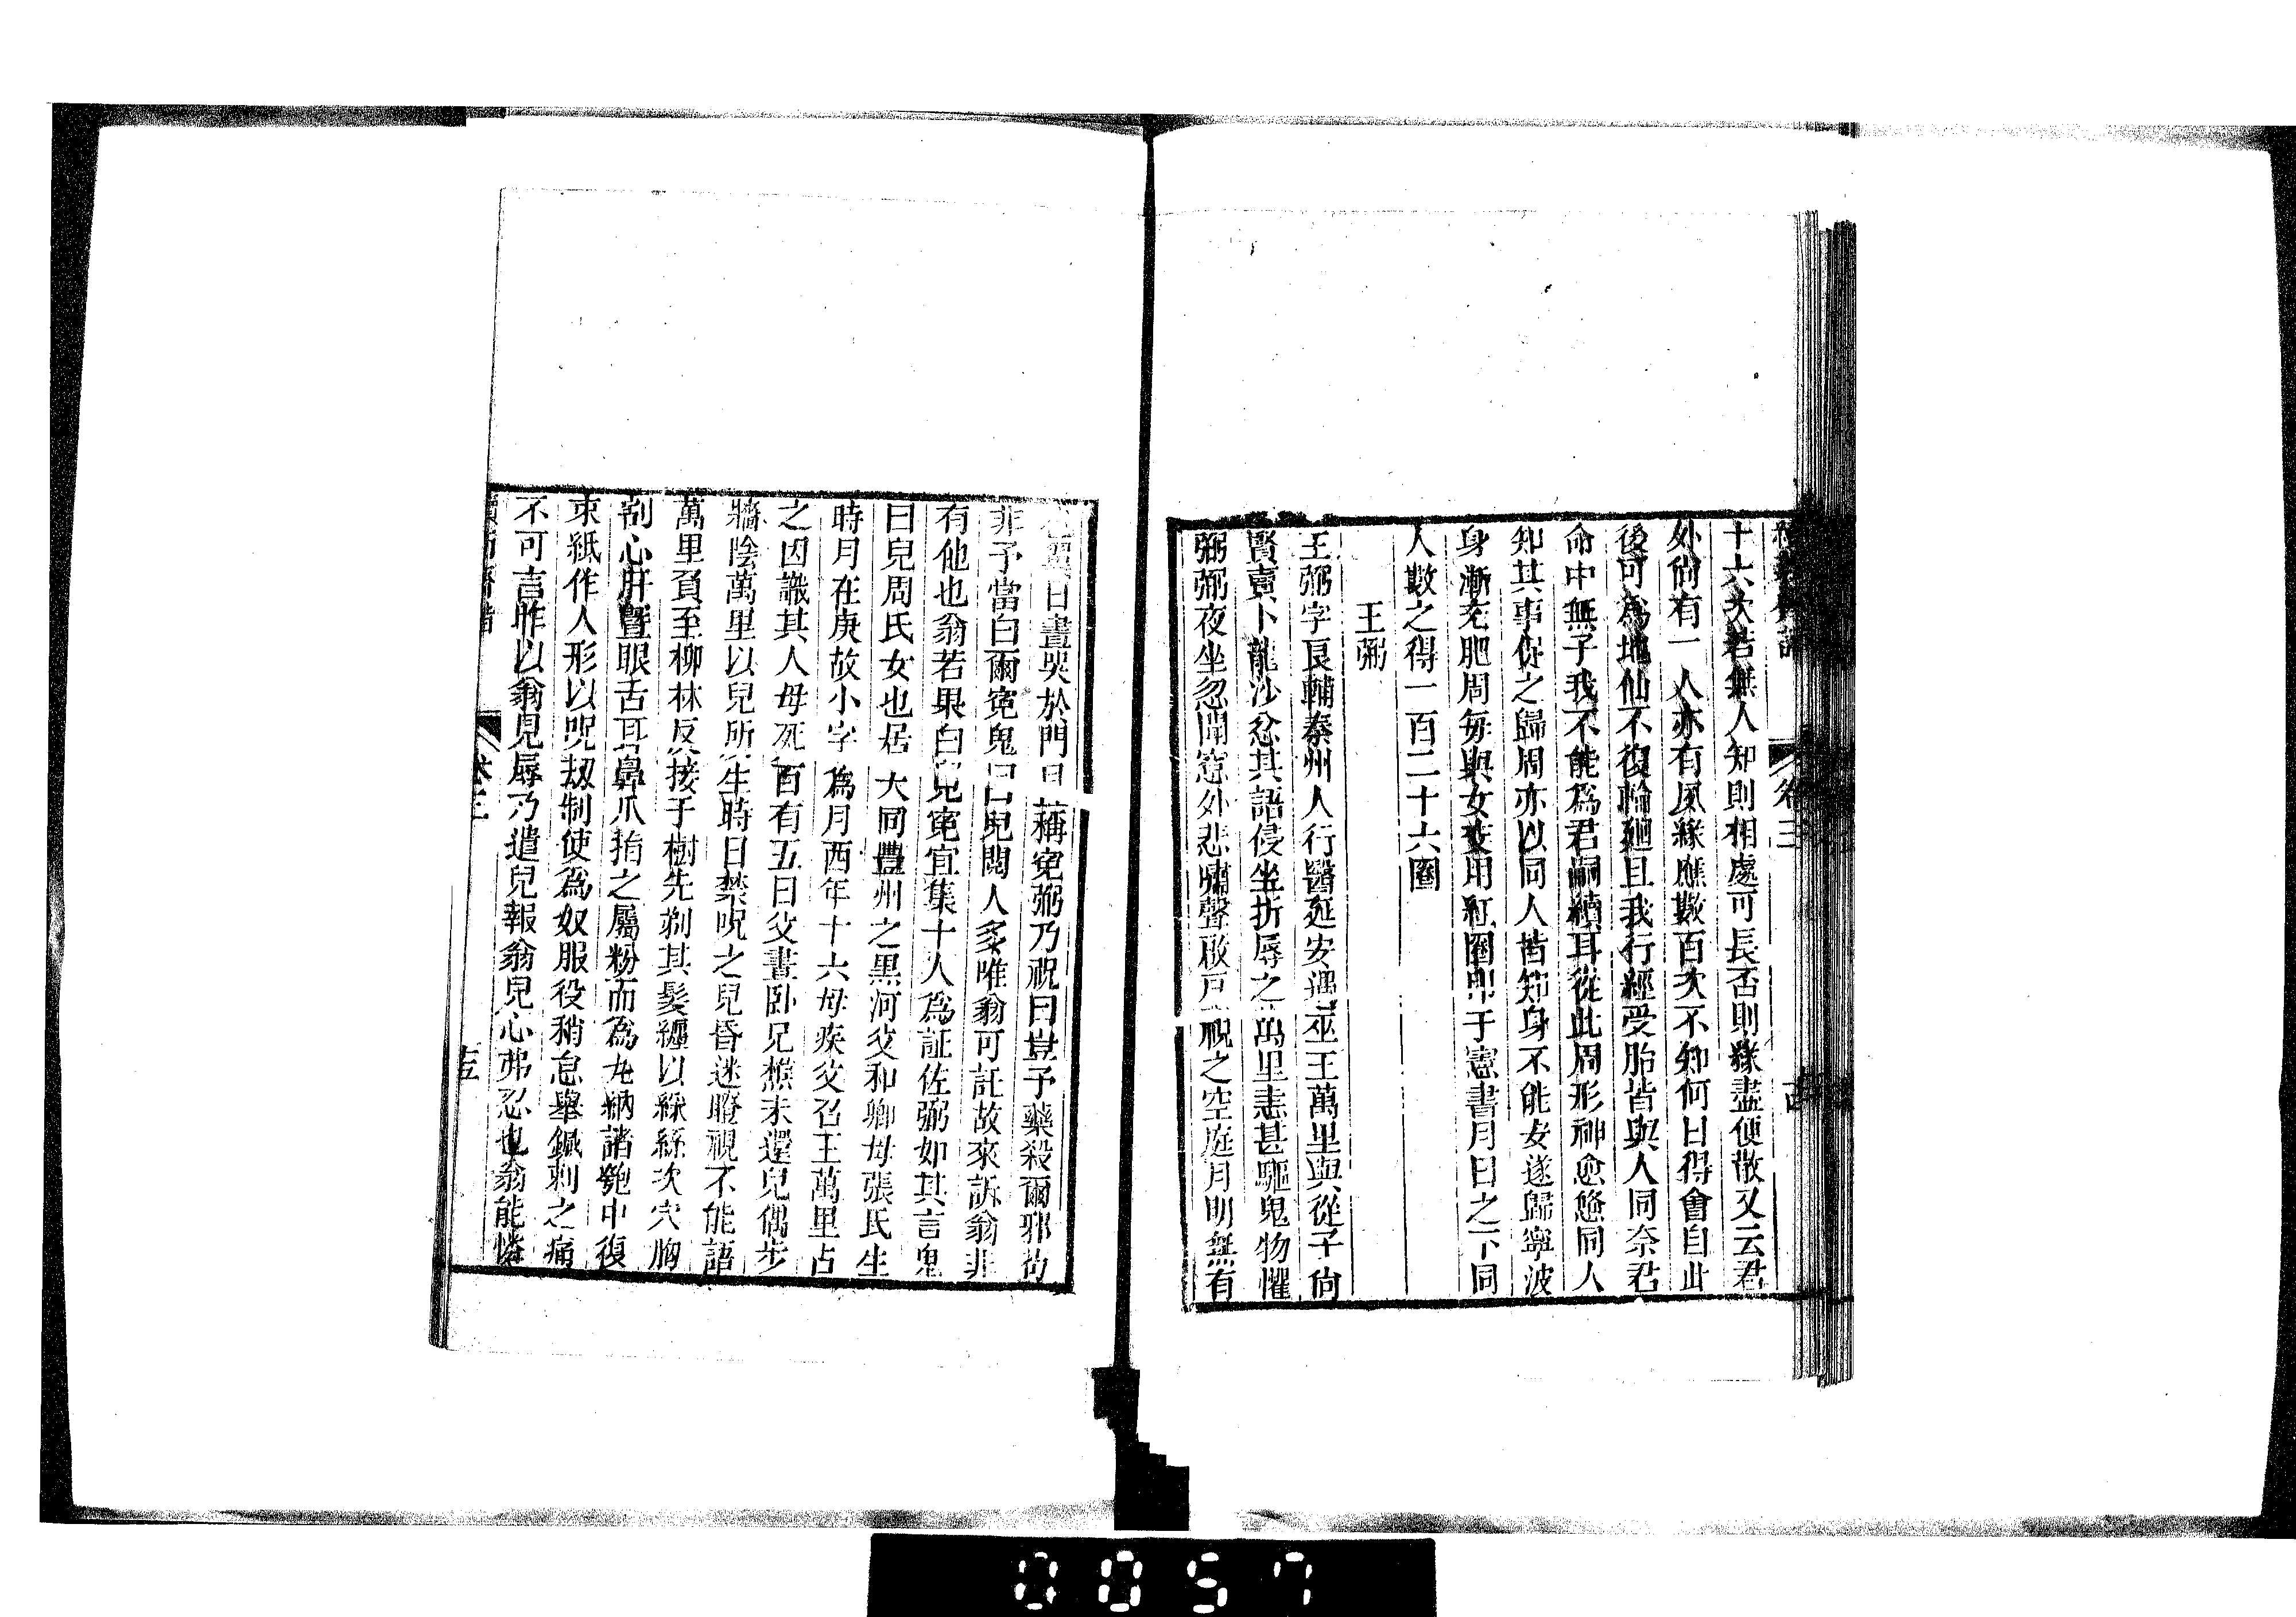 卷三
十六次若無人知則相處可長否則緣盡便散又云君
外尙有一人亦有夙緣應數百次不知何日得會自此
後可爲地仙不復輪廻且我行經受胎皆與人同奈君
命中無子我不能爲君嗣續耳從此周形神愈憊同人
知其事促之歸周亦以同人皆知身不能安遂歸寧波
身漸充肥周每與女交用紅圈印于憲書月日之下同
人數之得一百二十六圈
王弼
王弼字良輔秦州人行醫延安遇巫王萬里與從子尙
賢賣卜龍沙忿其語侵坐折辱之萬里恚甚驅鬼物懼
弼弼夜坐忽聞窓外悲嘯聲啟戶視之空庭月明無有
日晝哭於門且稱寃弼乃祝曰豈予藥殺爾邪苟
非予當白爾寃鬼曰兒閱人多唯翁可託故來訴翁非
有他也翁若果白兒寃宜集十人爲証佐弼如其言鬼
曰兒周氏女也居大同豐州之黑河父和卿母張氏生
時月在庚故小字爲月西年十六母疾父召王萬里占
之因識其人母死百有五日父晝卧兄樵未還兒偶步
牆陰萬里以兒所生時日禁呪之兒昏迷瞪視不能語
萬里負至柳林反接于樹先剃其髮纏以綵絲次穴胸
剖心肝暨眼舌耳鼻爪指之屬粉而爲丸納諸匏中復
束紙作人形以呪刼制使爲奴服役稍怠舉鍼刺之痛
不可言昨以翁見辱乃遣兒報翁兒心弗忍也翁能憐